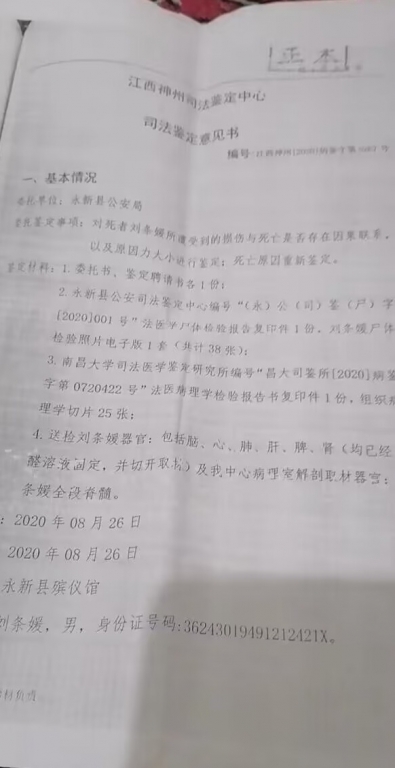 正本
江西神州司法鉴定中心
司法鉴定意见书
编号:江西神州[2020]病鉴字第
一、基本情况
委托单位：永新县公安局
委托鉴定事项：对死者刘条媛所遭受到的损伤与死亡是否存在因果联系，
以及原因力大小进行鉴定；死亡原因重新鉴定。
鉴定材料：1.委托书、鉴定聘请书各1份；
2.永新县公安司法鉴定中心编号“（永）公（司）鉴（尸）字
[2020]001号”法医学尸体检验报告复印件1份，刘条媛尸体
检验照片电子版1套（共计38张）；
3.南昌大学司法医学鉴定研究所编号“昌大司鉴所[2020]病鉴
字第0720422号”法医病理学检验报告书复印件1份，组织病
理学切片25张；
4.送检刘条媛器官：包括脑、心、肺、肝、脾、肾（均已经
醛溶液固定，并切开取材）及我中心病理室解剖取材器官：
条媛全段脊髓。
：2020年08月26日
2020年08月26日
永新县殡仪馆
刘条媛，男，身份证号码:36243019491212421X。